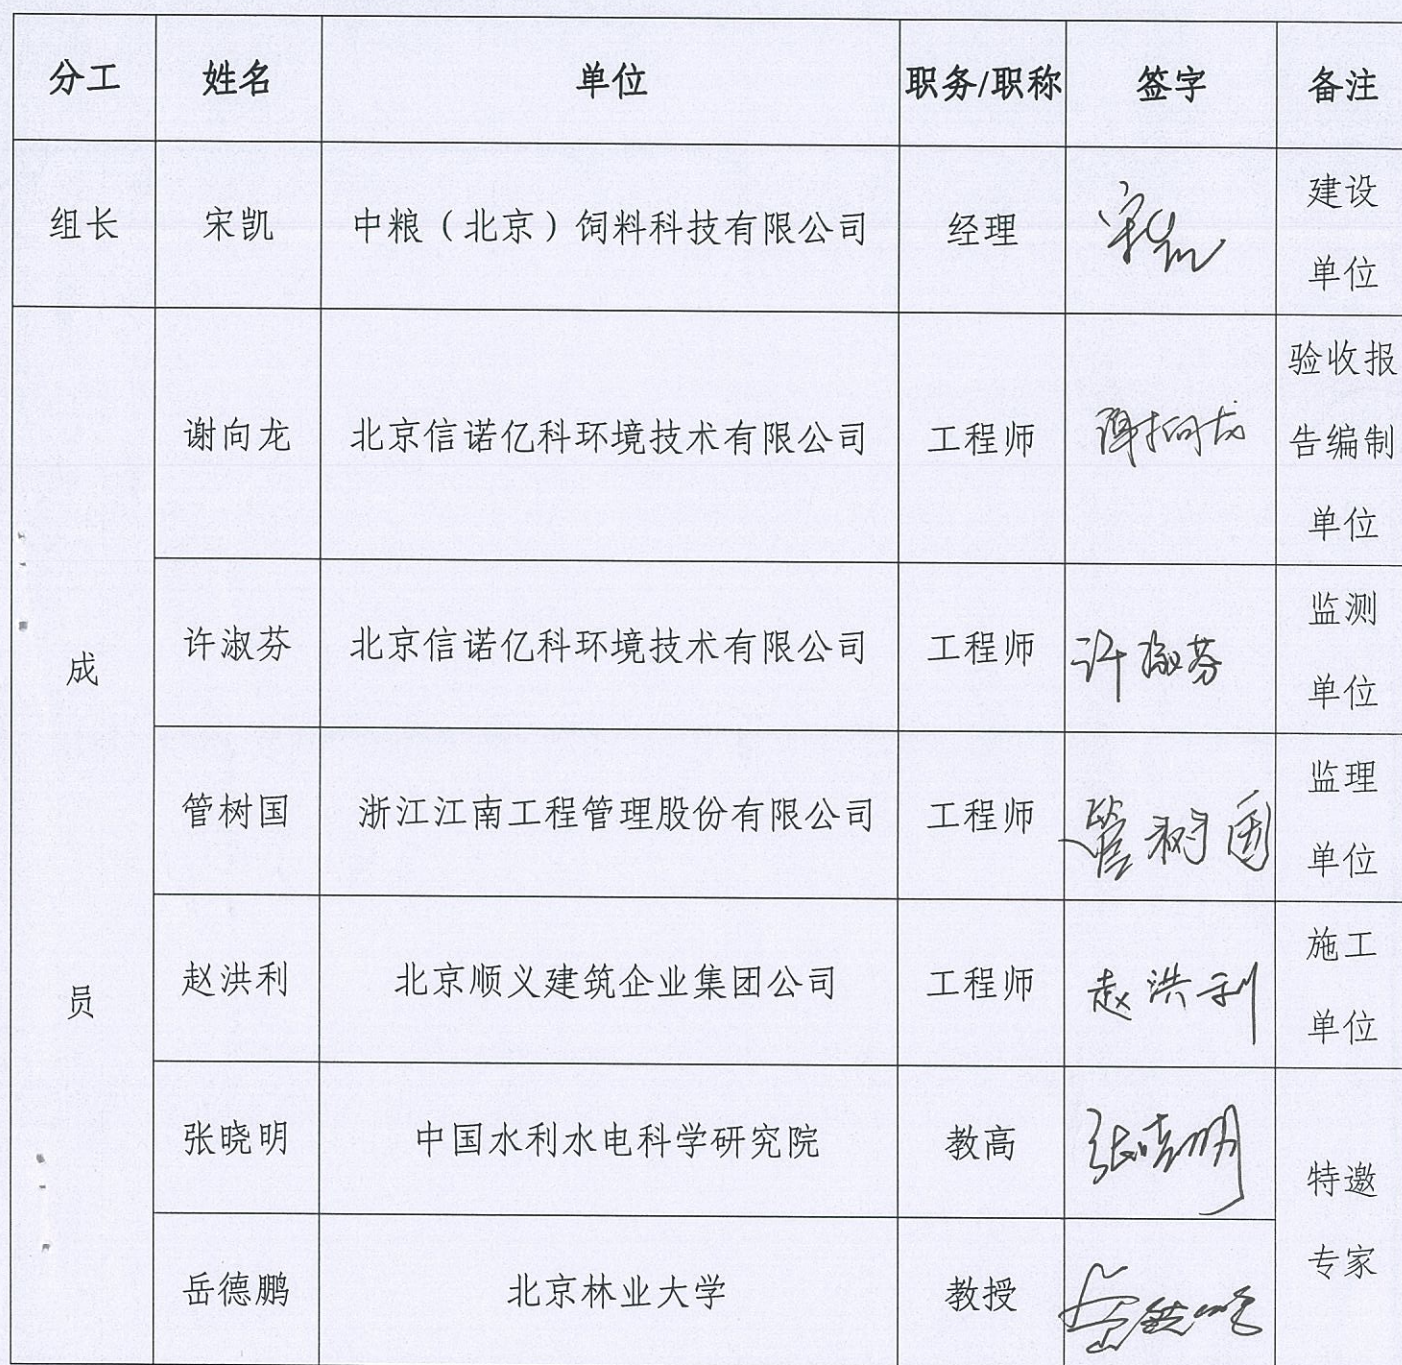 分工 姓名 单位 职务/职称 签字 备注
组长 宋凯 中粮（北京）饲料科技有限公司 经理 宋凯 建设
单位
成
员
谢向龙 北京信诺亿科环境技术有限公司 工程师 谢向龙 验收报
告编制
单位
许淑芬 北京信诺亿科环境技术有限公司 工程师 许淑芬 监测
单位
管树国 浙江江南工程管理股份有限公司 工程师 管树国 监理
单位
赵洪利 北京顺义建筑企业集团公司 工程师 赵洪利 施工
单位
张晓明 中国水利水电科学研究院 教高 张晓明 特邀
专家
岳德鹏 北京林业大学 教授 岳德鹏